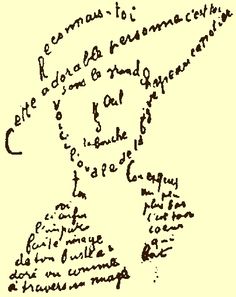 Reconnais-toi
Cette adorable personne c'est toi
Sous le grand chapeau canotier
Oeil
Nez
la bouche
Voici l'ovale de ta figure
Ton Cou exquis
Voi
ci enfin
l'impar
faite image
de ton buste a
doré vu comme
à travers un nuage
un peu
plus bas
c'est ton
coeur
qui
bat